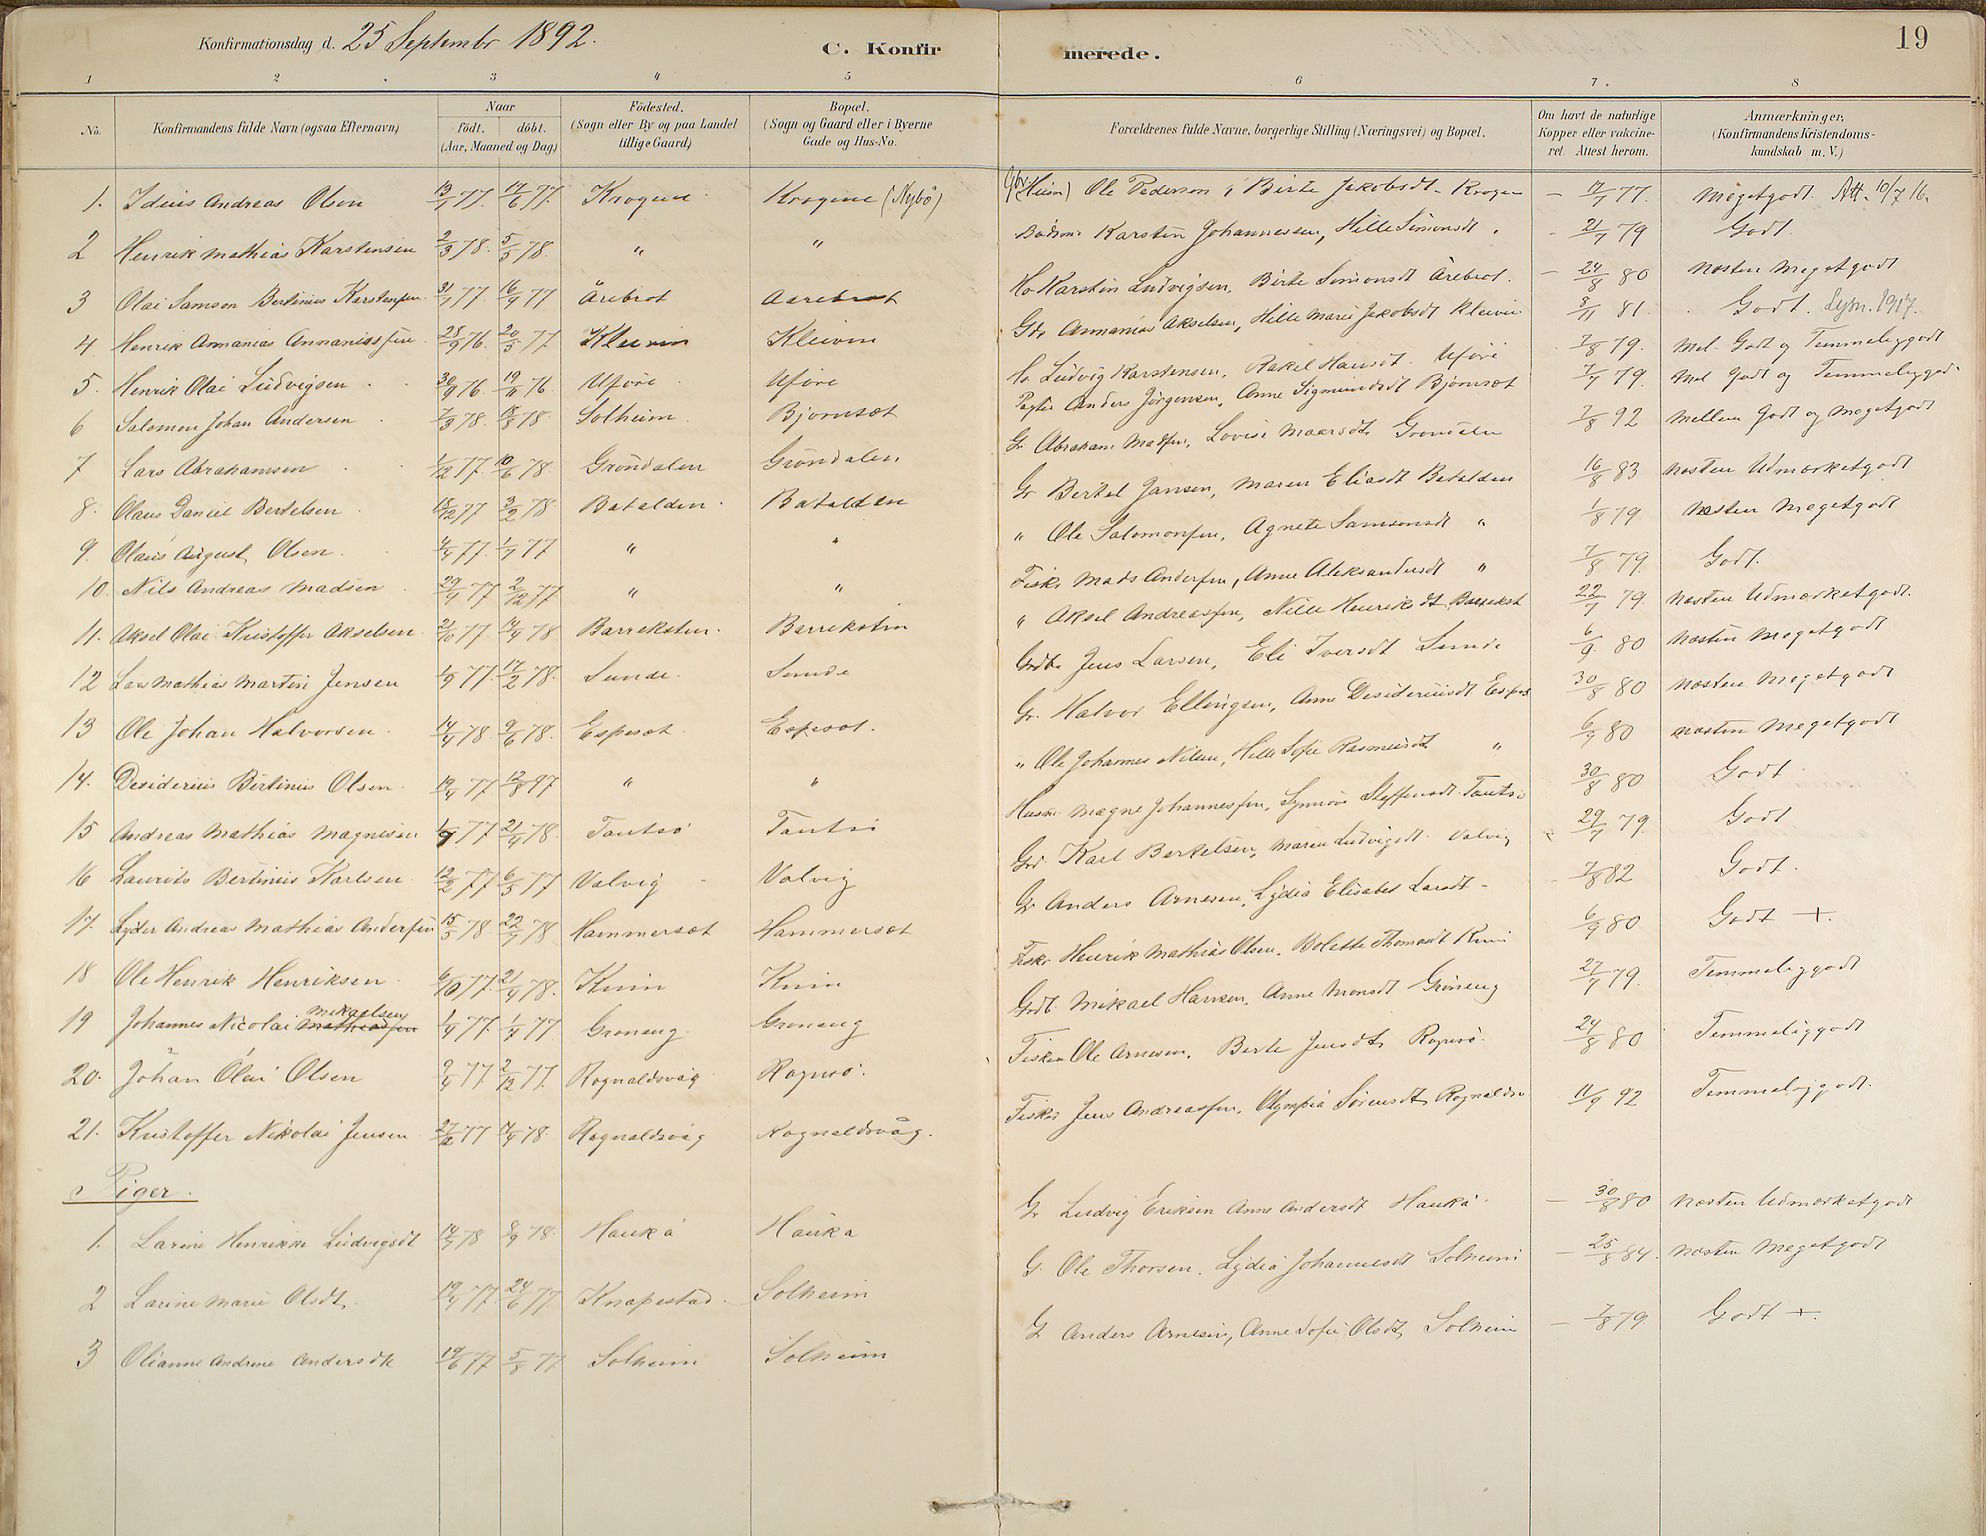 Konfirmationsdag d. 25 Septembr 1892.
C. Konfirmerede.
19
1 2 3 4 5 6 7 8
No.
Konfirmandens fulde Navn (ogsaa Efternavn)
Naar
födt. döbt.
(Aar, Maaned og Dag)
Födested.
(Sogn eller By og paa Landet
tillige Gaard)
Bopæl.
(Sogn og Gaard eller i Byerne
Gade og Hus-No.
Forældrenes fulde Navne, borgerlige Stilling (Næringsvei) og Bopæl.
Om havt de naturlige
Kopper eller vakcine-
ret. Attest herom.
Anmærkninger.
(Konfirmandens Kristendoms-
kundskab m. V.)
1. Idius Andreas Olsen 13/4 77. 17/6 77. Krogene Krogene (: Nybö) (Huism) Ole Pederson, Birte Jakobsdt. Krogen 17/7 77. Megetgodt. Att. 10/7 16.
2 Henrik Mathias Karstensen 2/3 78. 5/5 78. " " Karsten Johannessen, Hille Simonsdt 21/7 79 Godt.
3 Olai Samson Bertinius Karstensen 31/7 77. 16/9 77 Årebrot Aarebrot Karsten Ludvigsen, Birte Simonsdt Årebrot. 24/8 80 Næsten Megetgodt
4 Henrik Annanias Annaniassen 28/9 76. 20/5 77 Kleiven Kleiven Annanias Akselsen, Hille Marie Jakobsdt Kleiven 8/11 81. Godt. 1917.
5. Henrik Olai Ludvigsen 30/9 76. 19/11 76. Uföre Uföre Ludvig Karstensen, Rakel Hansdt. Uföre 7/8 79. Mel. Godt og Temmeliggodt
6 Salomon Johan Andersen 7/3 78. 18/8 78. Solheim Bjornset Anders Jörgensen, Anne Sigmundsdt Bjornset 7/7 79. Mel Godt og Temmeliggodt
7 Lars Abrahamsen 1/12 77. 10/6 78. Gröndalen Gröndalen Gr Abraham Madsen, Lovise Gröndalen 7/8 92 Mellem Godt og Megetgodt
8. Olaus Daniel Bertelsen 18/12 77 3/2 78 Batalden Batalden Gr Bertel Jansen, Maren Eliasdt Batalden 16/8 83 Næsten Udmærketgodt
9. Olaus August Olsen. 4/4 77. 1/7 77 " " " Ole Salomonsen, Agnete Samsonsdt " 1/8 79. Næsten Megetgodt
10. Nils Andreas Madsen 29/4 77 2/12 77 " " Fisk. Mads Andersen, Anne Aleksandersdt " 7/8 79. Godt.
11. Aksel Olai Kristoffer Akselsen 21/10 77. 14/4 78 Barreksten Barrekstin " Aksel Andreassen, Nille Henriksdt Barrekst 22/7 79. Næsten Udmærketgodt.
12 Lars Mathias Martin Jensen 1/9 77. 17/2 78. Sunde. Sunde Gdb. Jens Larsen, Eli Iversdt Sunde 6/9 80 Næsten Megetgodt
13 Ole Johan Halvorsen 14/4 78. 9/6 78. Espeset Espeset. Gr. Halvor Ellingsen, Anne Desideriusdt 30/8 80 Næsten Megetgodt
14. Desiderius Bertinius Olsen 19/4 77 12/8 77 " " " Ole Johannes Nilsen, Hille Sofie Rasmusdt " 6/9 80 næsten Megetgodt
15 Andreas Mathias Magnesen 1/9 77 21/4 78. Tautsö Tautsö Husm. Magne Johannessen, Synnöve Steffensdt. Tautsö 30/8 80 Godt
16 Laurits Bertinius Karlsen 12/2 77 6/5 77 Valvig Valvig Karl Bertelsen, Maren Ludvigsdt. Valvig 29/7 79. Godt
17. Lyder Andreas Mathias Andersen 15/5 78. 22/7 78 Hammerset Hammerset Gr Anders Arnesen, Lydia Elisabet Larsdt 7/8 82 Godt.
18 Ole Henrik Henriksen 6/10 77. 21/4 78. Kinn Kinn Fisk. Henrik Mathias Olsen, Bolette Thomasdt Kinn 6/9 80 Godt +.
19 Johannes Nicolai Mikaelsen Mathiassen 1/4 77. 1/7 77 Gröneng Gröneng Gdb. Mikael Hansen, Anne Monsdt Gröneng 27/7 79. Temmeliggodt
20. Johan Olai Olsen 9/4 77 2/12 77. Rognaldsvåg Rognsö. Fisker Ole Arnesen, Berte Jensdt Rognsö. 24/8 80 Temmeliggodt
21. Kristoffer Nikolai Jensen 77 78. Rognaldsvåg Rognaldsvåg. Fisker Jens Andreassen, Olympia Sörensdt 11/9 92 Temmeliggodt.
Piger.
1. Larine Henrikke Ludvigsdt 78 8/9 78. Haukå Hauka Gr Ludvig Eriksen Anne Andersdt Haukå 30/8 80 Næsten Udmærketgodt
2 Larine Marie Olsdt. 19/4 77 24/6 77. Knapestad Solheim G. Ole Thorsen. Lydia Johannesdt Solheim 25/8 84. Næsten Megetgodt
3 Olianne Andrine Andersdt 19/6 77 5/8 77 Solheim Solheim G Anders Arnesen, Anne Sofie Olsdt, Solheim 7/8 79. Godt +.